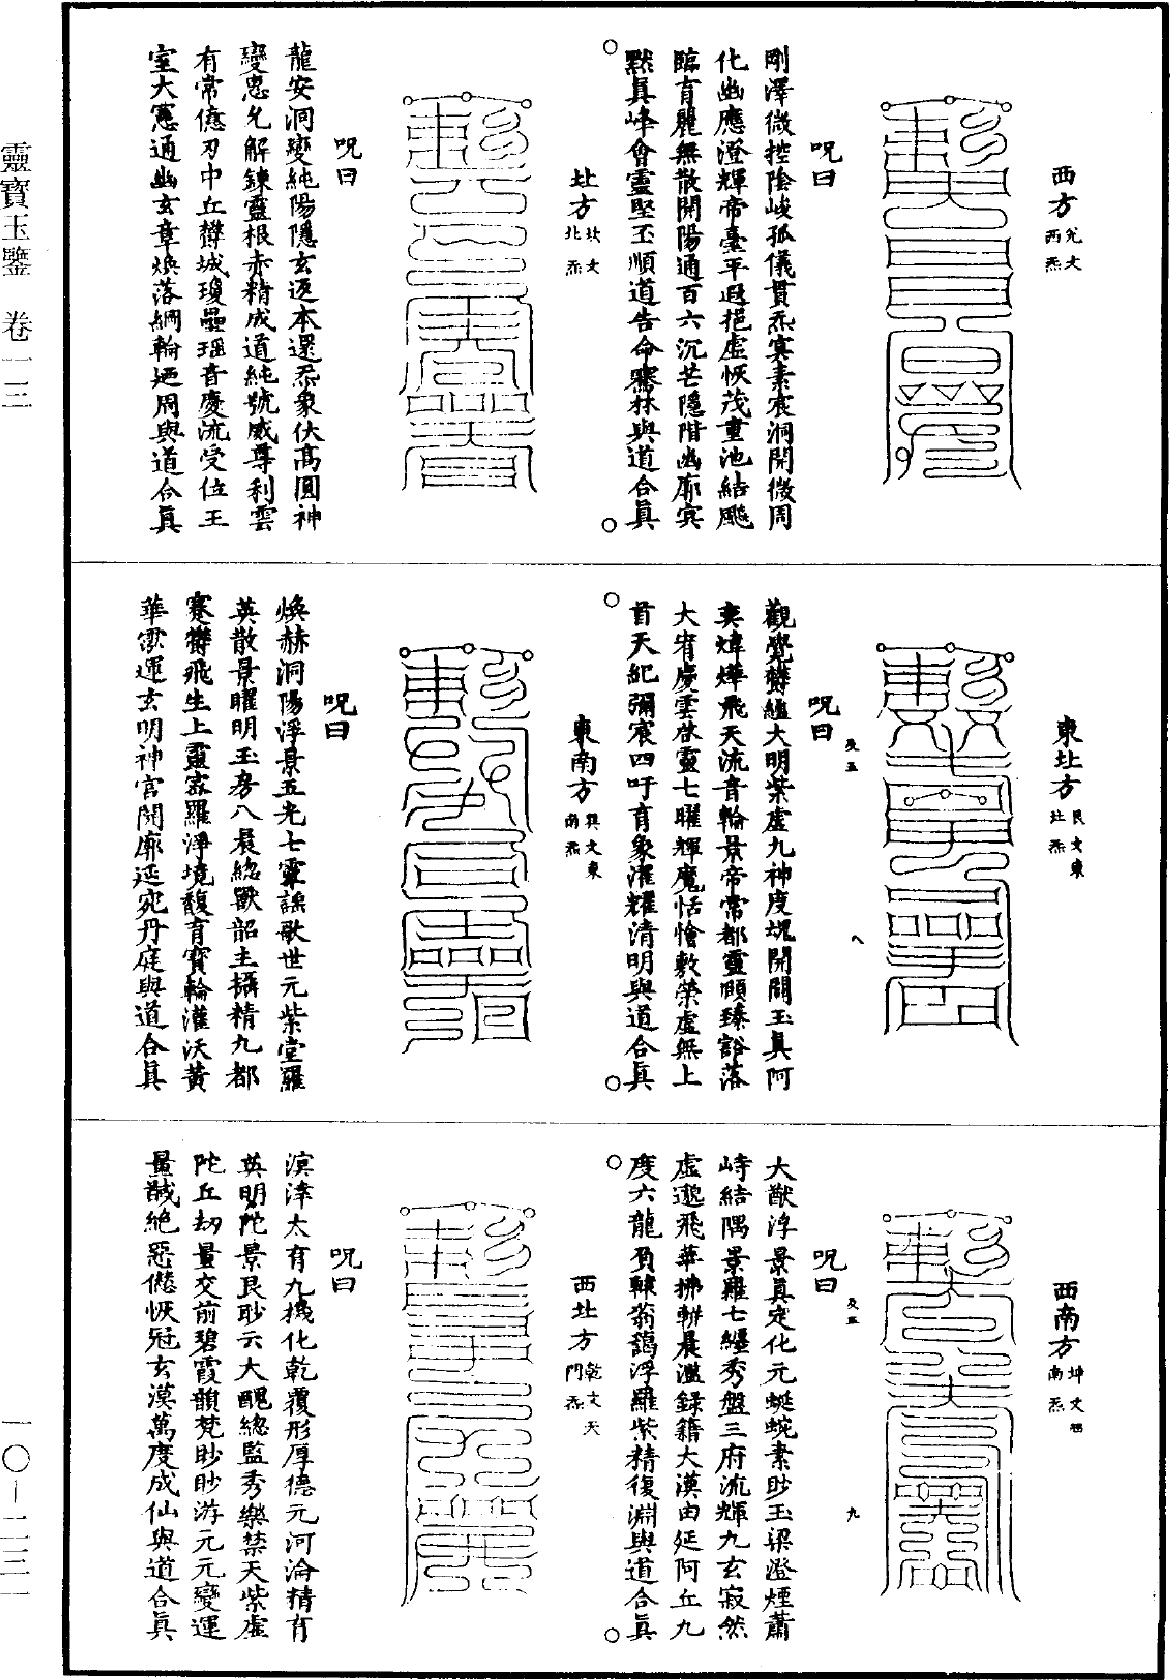 靈寶玉鑒　卷一三
一〇—二三一
西方
兌文
西炁
呪曰
剛澤微控陰峻孤儀貫炁寞素宸洞開微周
化幽應澄輝帝臺平遐挹虛恢茂重池結飈
臨育麗無散開陽通百六沉芒隱階幽廓賓
默真峰會靈堅玉順道告命騫林與道合真
北方
坎文
北炁
呪曰
龍安洞變純陽隱玄返本還炁象伏高圓神
變忠允解鍊靈根赤精成道純號威尊利雲
有常億刃中丘欝城瓊壘瑶音慶流受位玉
室大憲通幽玄章煥落綱輪廻周與道合真
東北方
艮文東
北炁
呪曰
觀覺欝縕大明紫虛九神度魂開關玉真阿
奕煒燁飛天流音輪景帝常都靈頤臻谿落
大宥慶雲啓靈七曜輝魔恬懀敷榮虛無上
首天紀彌宸四吁育象濯耀清明與道合真
東南方
巽文東
南炁
呪曰
煥赫洞陽浮景五光七靈謡歌世元紫堂羅
英散景曜明玉房八晨緫獸韶主攝精九都
蹇欝飛生上靈宻羅淨境馥育寶輪灌沃黃
華霐運玄明神官開廓延宛丹庭與道合真
西南方
坤文西
南炁
呪曰
大猷浮景真定化元蜓蜿素眇玉梁澄煙蕭
峙結隅景羅七纏秀盤三府流輝九玄寂然
虛邈飛華拂軿晨濫録籍大漠由延阿丘九
度六龍負轅翁藹浮羅紫精復淵與道合真
西北方
乾文天
門炁
呪曰
溟涬太育九機化乾覆形厚德元河淪精育
英明陀景艮眇云大醜緫監秀樂禁天紫虛
陀丘刼量交前碧霞韻梵眇眇游元元變運
量馘絶惡儊恢冠玄漠萬度成仙與道合真